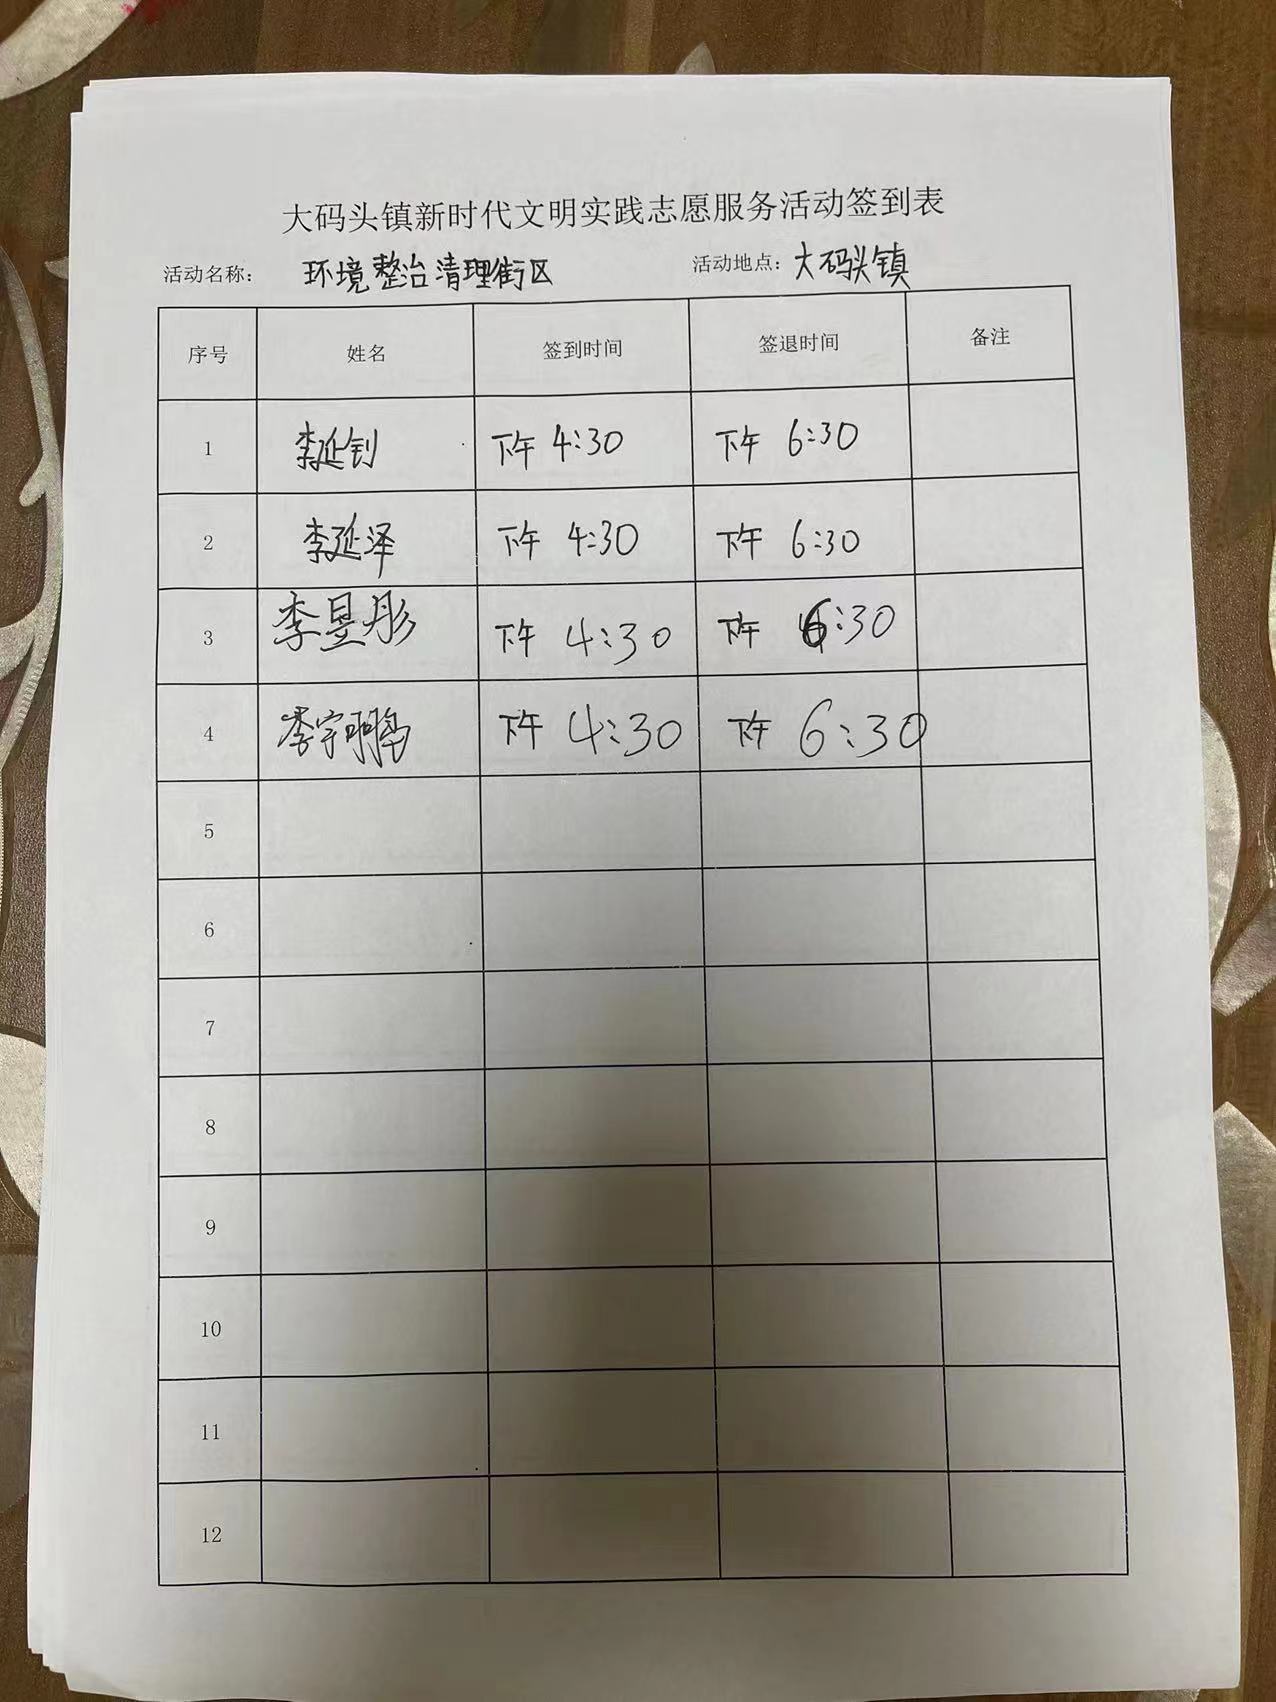 大码头镇新时代文明实践志愿服务活动签到表
活动名称： 环境整治清理街区 活动地点：大码头镇
序号 姓名 签到时间 签退时间 备注
1 李延钊 下午 4:30 下午 6:30
2 李延泽 下午 4:30 下午 6:30
3 李昱彤 下午 4:30 下午 6:30
4 李宇鹏 下午 4:30 下午 6:30
5
6
7
8
9
10
11
12